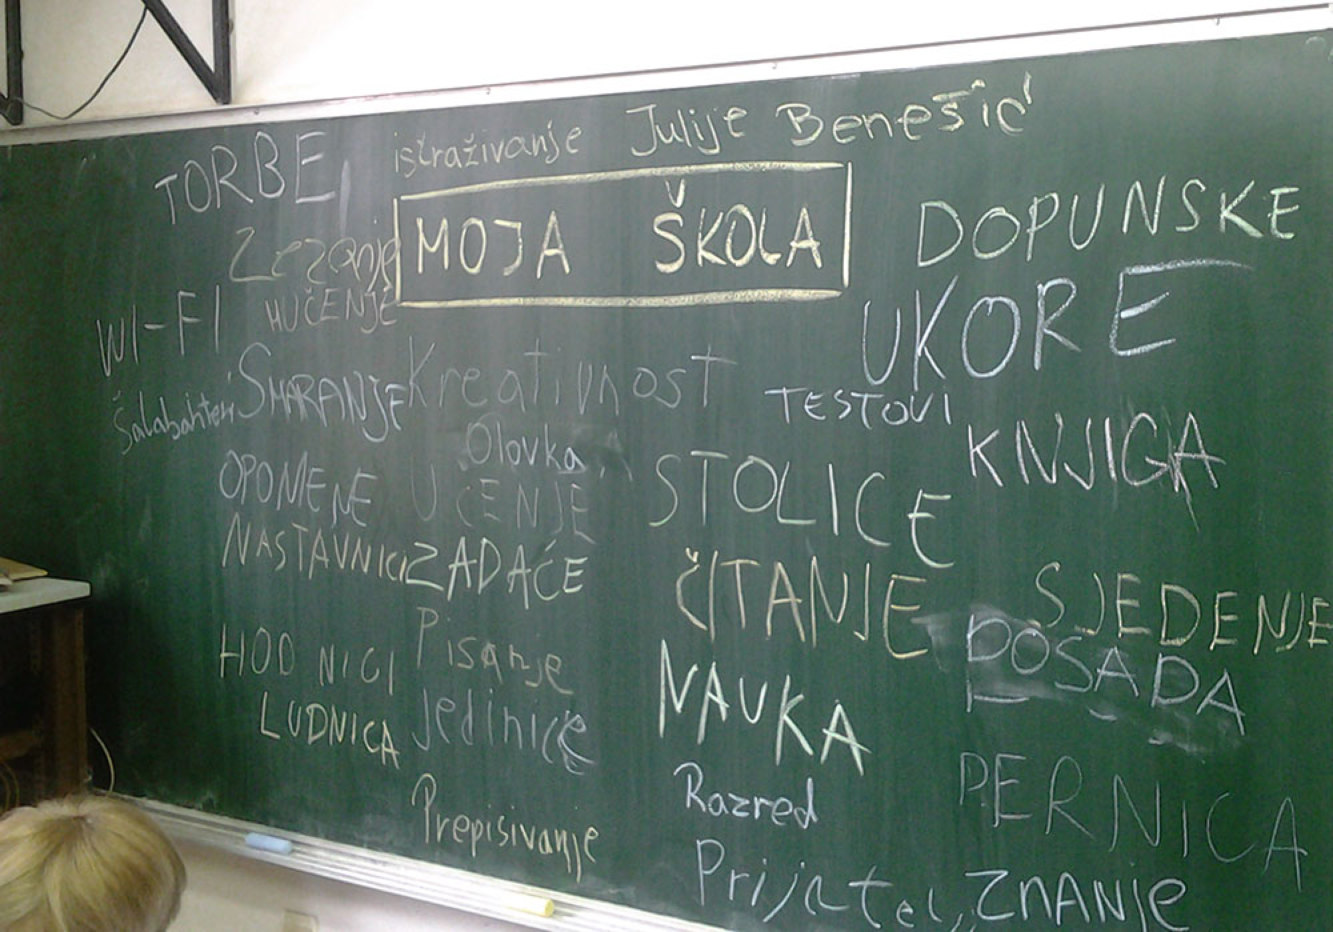 istraživanje Julije Benešić
TORBE
MOJA ŠKOLA
DOPUNSKE
Zezanje
UKORE
WI-FI
MUČENJE
Kreativnost
TESTOVI
SMARANJE
Šalabahteri
KNJIGA
Olovka
OPOMENE
UČENJE
STOLICE
NASTAVNICI
ZADAĆE
ČITANJE
SJEDENJE
HODNICI
Pisanje
DOSADA
NAUKA
LUDNICA
Jedinice
Razred
PERNICA
Prepisivanje
Prijatelj
ZNANJE